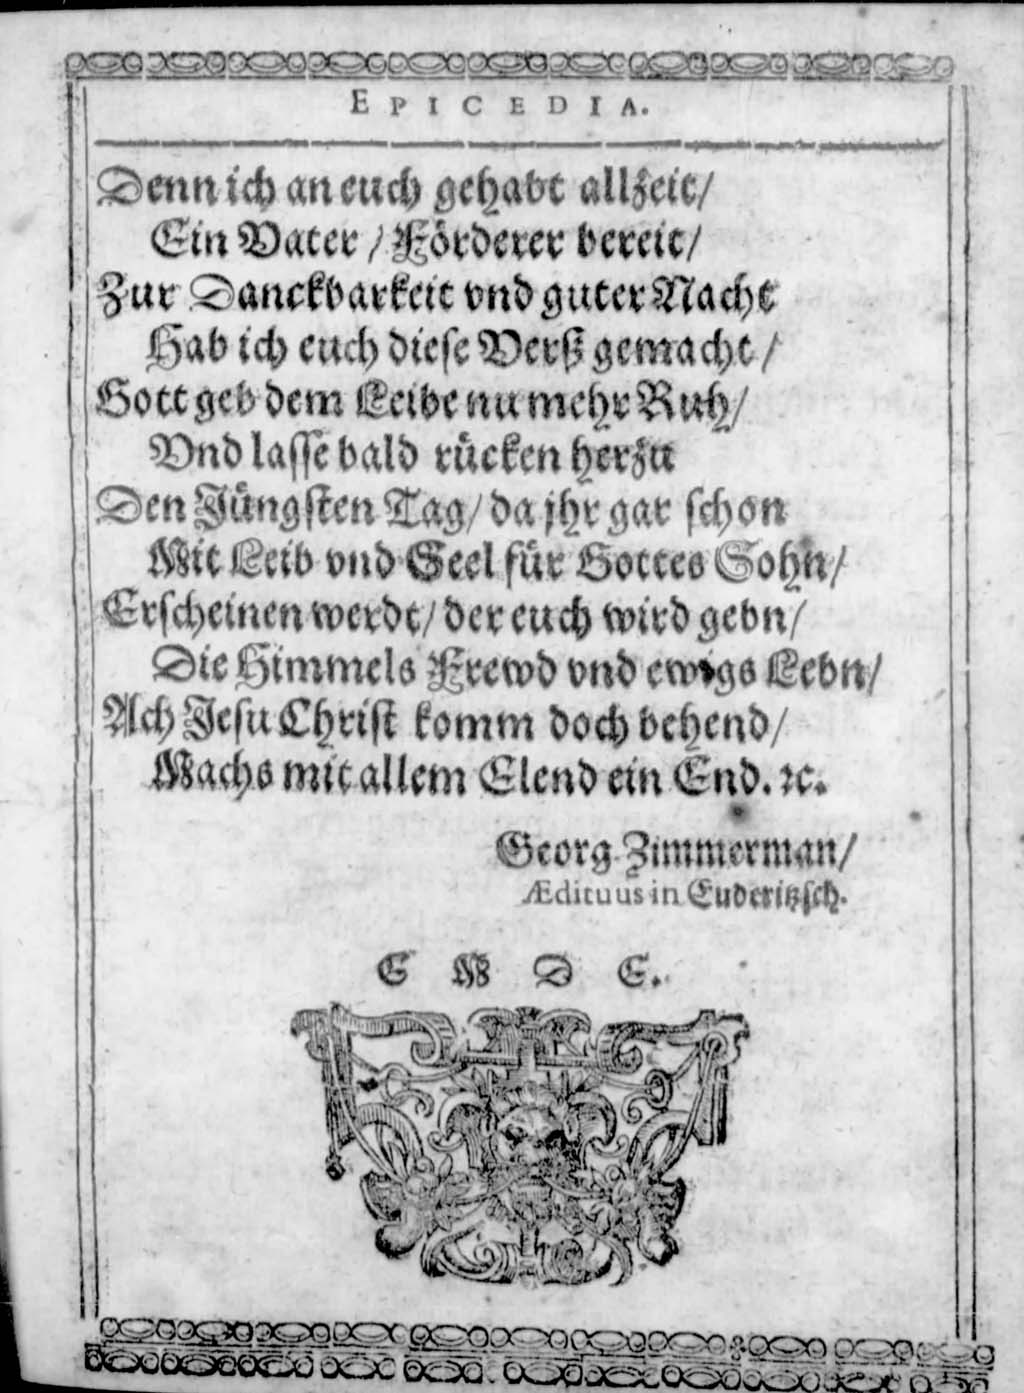 EPICEDIA.
Denn ich an euch gehabt allzeit/
Ein Vater / Förderer bereit/
Zur Danckbarkeit vnd guter Nacht
Hab ich euch diese Verß gemacht /
Gott geb dem Leibe nu mehr Ruh/
Vnd lasse bald rücken herzu
Den Jüngsten Tag/ da jhr gar schon
Mit Leib vnd Seel für Gottes Sohn/
Erscheinen werdt/ der euch wird gebn/
Die Himmels Frewd vnd ewigs Lebn/
Ach Jesu Christ komm doch behend/
Machs mit allem Elend ein End. ꝛc.
Georg Zimmerman/
Ædituus in Euderitzsch.
E M D E.